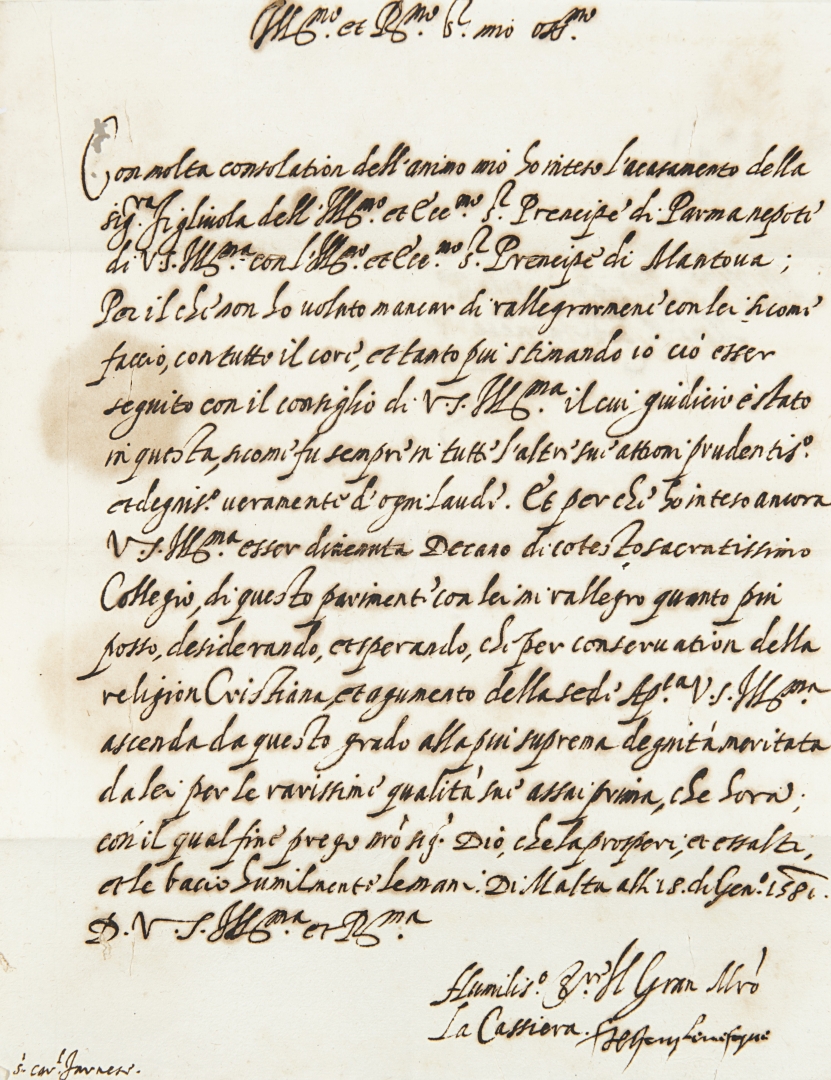 Ill.mo et R.mo S.r mio oss.mo
Con molta consolation dell'animo mio ho inteso l'acasamento della
sig.ra figliuola dell'Ill.mo et Ecc.mo S.r Prencipe di Parma nepote
di V.S. Ill.ma con l'Ill.mo et Ecc.mo S.r Prencipe di Mantova ;
Per il che non ho voluto mancar di rallegrarmene con lei, sicome
faccio, con tutto il core, et tanto piu stimando io ciò esser
seguito con il consiglio di V.S. Ill.ma il cui giudicio è stato
in questa, sicome fu sempre in tutte l'altre sue attioni prudentis.o
et degnis.o veramente d'ogni laude. Et perche ho inteso ancora
V.S. Ill.ma esser divenuta Decano di cotesto sacratissimo
Collegio, di questo parimente con lei mi rallegro quanto piu
posso, desiderando, et sperando, che per conservation della
religion Cristiana, et agumento della sede Ap.ca V.S. Ill.ma
ascenda da questo grado alla piu suprema degnità meritata
da lei per le rarissime qualità sue assai prima, che hora;
con il qual fine prego nrō sig.r Dio, che la prosperi, et essalti,
et le bacio humilmente le mani. Di Malta alli 18. di Gen.o 1581.
D. V. S. Ill.ma et R.ma
Humilis.o Il Gran Mrō
La Cassiera.
S. car.l Farnese.